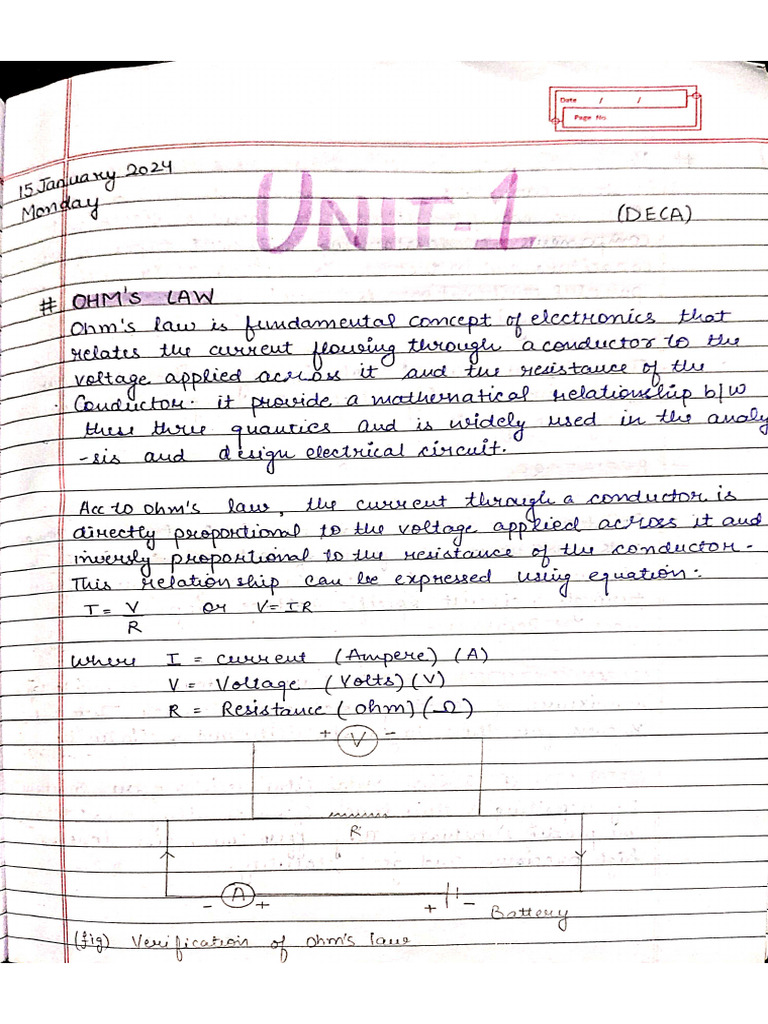 Date / /
Page No
15 January 2024
Monday
UNIT-1
(DECA)
# OHM'S LAW
Ohm's law is fundamental concept of electronics that
relates the current flowing through a conductor to the
voltage applied across it and the resistance of the
Conductor. it provide a mathematical relationship b/w
these three quantics and is widely used in the analy
-sis and design electrical circuit.
Acc to ohm's law, the current through a conductor is
directly proportional to the voltage applied across it and
inversly proportional to the resistance of the conductor.
This relationship can be expressed using equation:
I = V/R or V = IR
Where I = current (Ampere) (A)
V = Voltage (Volts) (V)
R = Resistance (ohm) (Ω)
+ V -
R
- A + + - Battery
(fig) Verification of ohm's law